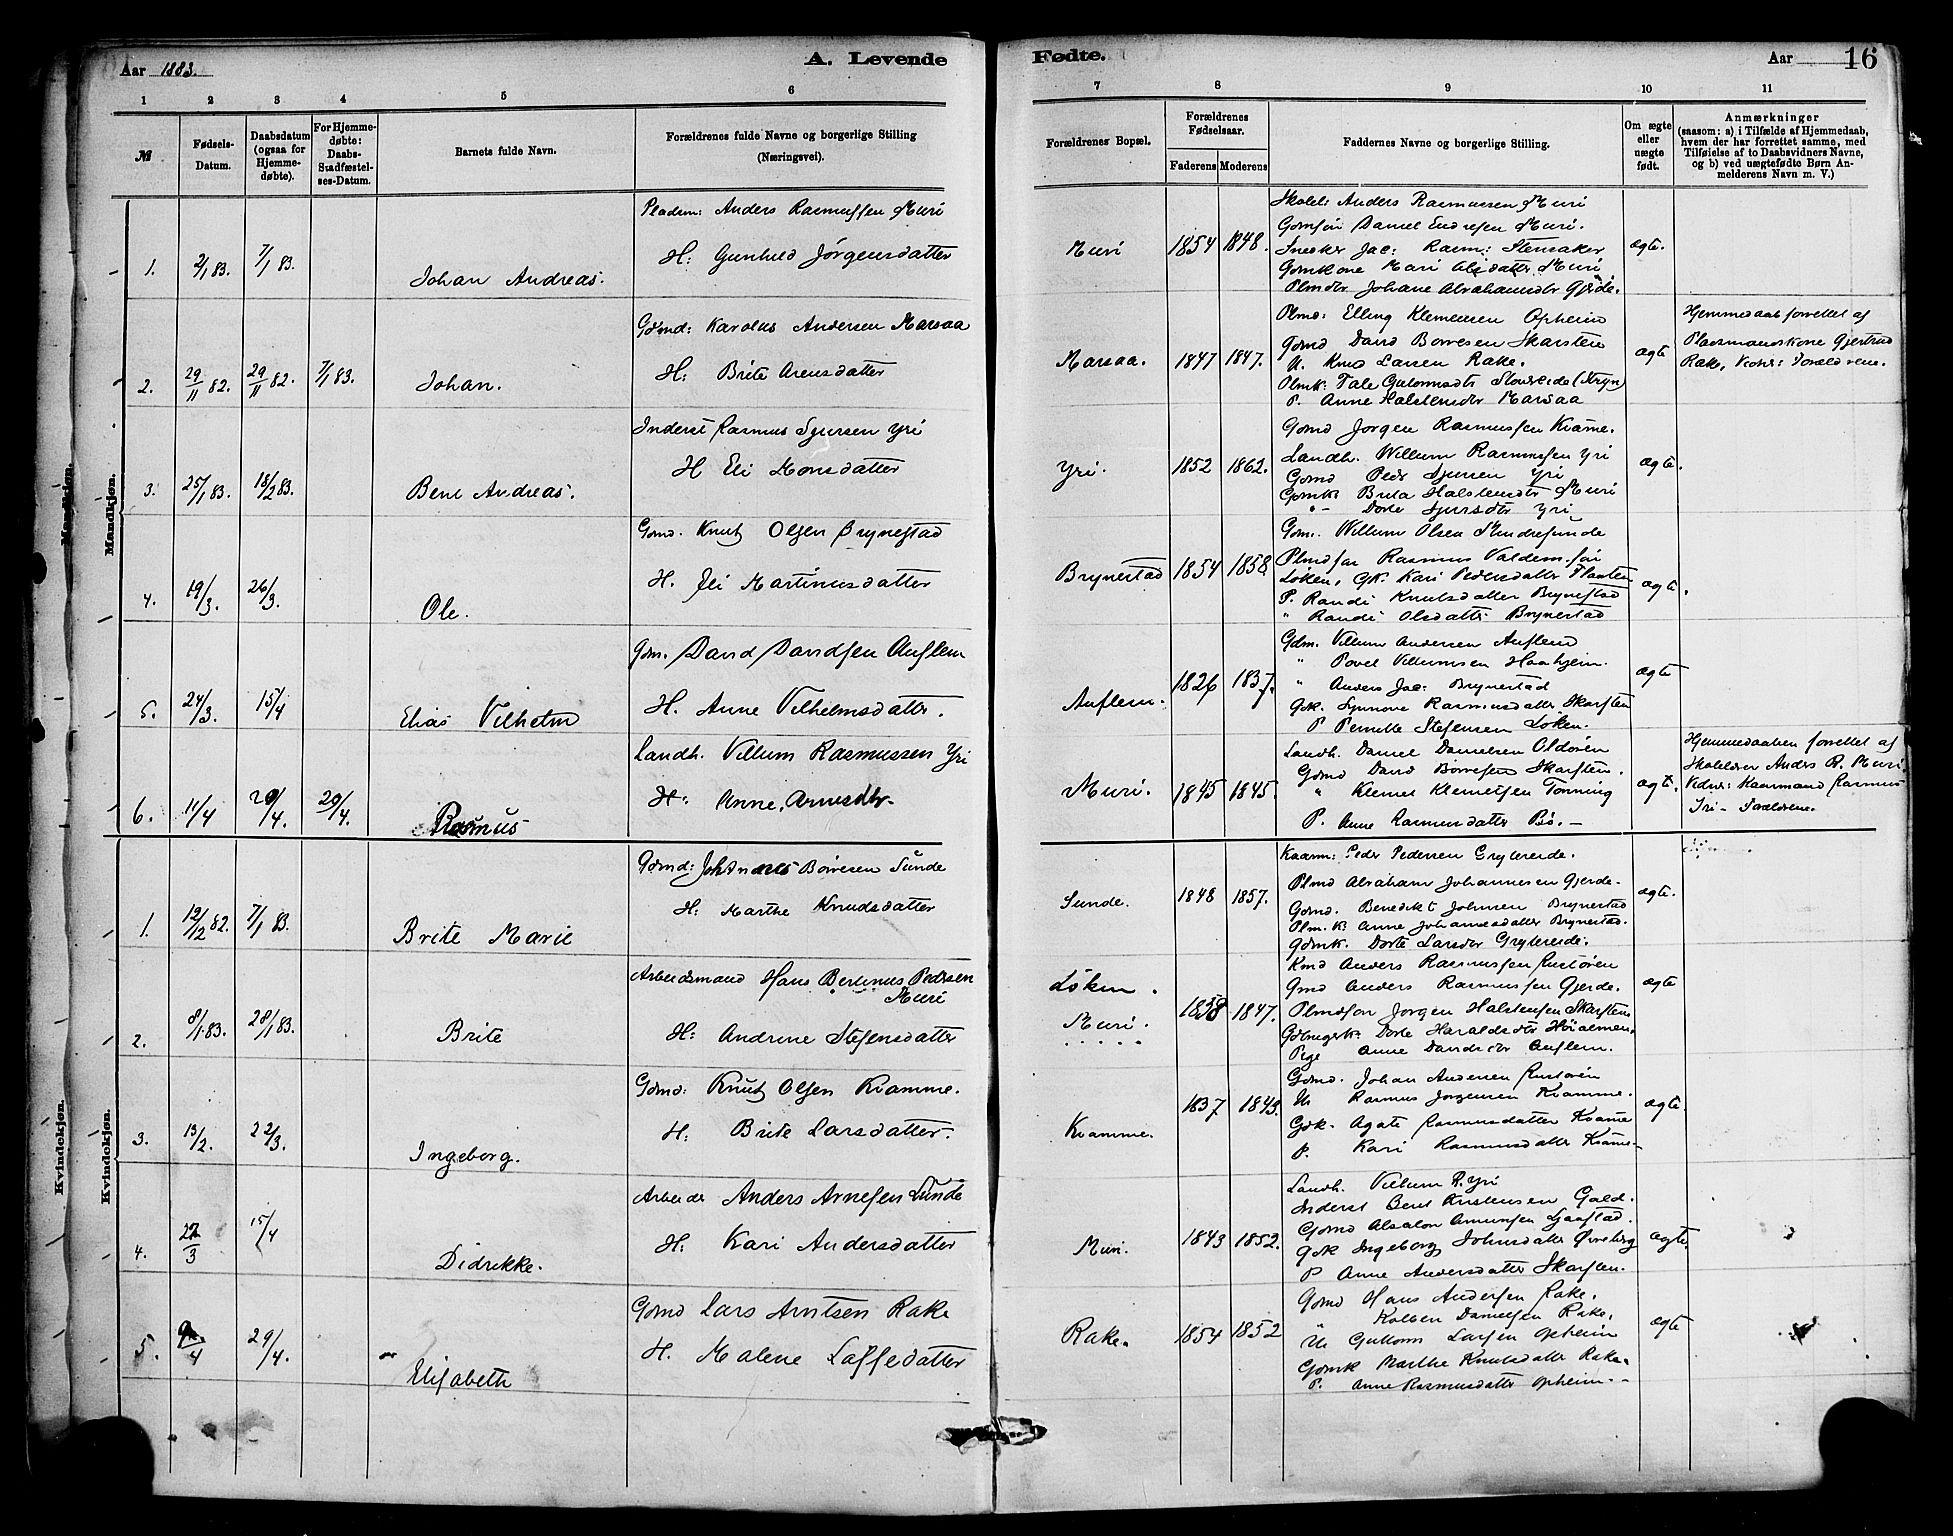 Aar 1883. A. Levende
Fødte. Aar 16
1 2 3 4 5 6
7 8 9 10 11
№
Fødsels-Datum.
Daabsdatum (ogsaa for Hjemme-døbte).
For Hjemme-døbte: Daabs-Stadfæstel-ses-Datum.
Barnets fulde Navn.
Forældrenes fulde Navne og borgerlige Stilling (Næringsvei).
Forældrenes Bopæl.
Forældrenes Fødselsaar.
Faderens Moderens
Faddernes Navne og borgerlige Stilling.
Om ægte eller uægte født.
Anmærkninger
(saasom: a) i Tilfælde af Hjemmedaab,
hvem der har forrettet samme, med
Tilføielse af to Daabsvidners Navne,
og b) ved uægtefødte Børn An-
melderens Navn m. V.)
Mandkjøn.
1. 2/1 83. 7/1 83. Johan Andreas.
Pladsm: Anders Rasmussen Muri
H: Gunhild Jørgensdatter
Muri 1854 1848.
Skolel: Anders Rasmussen Muri
Gdmsøn Daniel Endresen Muri.
Snedker Jac: Rasm: Stensaker
Gdmkone Mari Olsdatter Muri
Plmdtr Johane Abrahamsdtr Gjerde.
ægte.
2. 29/11 82. 29/11 82. 7/1 83. Johan.
Gdmd: Karolus Andersen Marsaa
H: Brite Arensdatter
Marsaa. 1847 1847.
Plmd: Elling Klemensen Opheim
Gdmd David Børresen Skarsten
U. Knud Larsen Rake.
Plmk. Tale Guttormsdtr (Stryn)
P. Anne Halstensdtr Marsaa
ægte
Hjemmedaab forrettet af
Pladsmandskone Gjertrud
Rake, Vidnr: Forældrene.
3. 25/1 83. 18/2 83. Bent Andreas.
Inderst Rasmus Sjursen Yri
H Eli Monsdatter
Yri. 1852 1862.
Gdmd Jørgen Rasmussen Kvame.
Landh. Willum Rasmussen Yri
Gdmd Peder Sjursen Yri
Gdmk Brita Halstensdtr Muri
" - Dorte Sjursdtr Yri
ægte.
4. 19/3. 26/3. Ole.
Gdmd. Knut Olsen Brynestad
H. Eli Martinusdatter
Brynestad 1854 1858
Gdm. Willum Olsen Mindresunde
Plmdsøn Rasmus
Løken, Gk. Kari Pedersdatter
P. Randi Knutsdatter Brynestad
" Randi Olsdatter Brynestad
ægte.
5. 24/3. 15/4 Elias Vilhelm
Gdm. David Davidsen Auflem
H. Anne Vilhelmsdatter.
Auflem. 1826 1837.
Gdm. Villum Andersen Auflem
" Povel Villumsen Haahjem.
" Anders Jac: Brynestad
Gdk. Synnøve Rasmusdatter Skarsten
P Pernille Stefensen Løken.
ægte
6. 11/4 20/4. 29/4. Rasmus
Landh. Villum Rasmussen Yri
H: Anne Arnesdtr.
Muri. 1845 1845.
Landh. Daniel Danielsen Oldøren
Gdmd David Børresen Skarsten.
" Klemet Klemetsen Tonning
P. Anne Rasmusdatter Bø. -
ægte.
Hjemmedaaben forrettet af
Skolelærer Anders R. Muri
Vidnr: Kaarmand Rasmus
Yri - Forældrene.
Kvindekjøn.
1. 12/12 82. 7/1 83. Brite Marie
Gdmd: Johannes Børresen Sunde
H: Marthe Knudsdatter
Sunde. 1848 1857.
Kaarm: Peder Pedersen Grytereide.
Plmd Abraham Johannesen Gjerde.
Gdmd. Benedikt Johnsen Brynestad
Plm.k. Anne Johannesdatter Brynestad.
Gdmk. Dorte Larsdtr Grytereide.
ægte.
2. 8/1 83. 28/1 83. Brite
Arbeidsmand Hans Bertinus Pedersen
Muri
H: Andrine Stefensdatter
Løken.
Muri. 1858 1847.
Kmd Anders Rasmussen Rustøren
Gmd Anders Rasmussen Gjerde.
Plmdsøn Jørgen Halstensen Skarsten
Dorte Haraldsdtr
Pige Anne Davidsdtr Auflem.
ægte
3. 13/2. 22/3. Ingeborg.
Gdmd: Knut Olsen Kvamme.
H: Brite Larsdatter.
Kvamme. 1837 1843.
Gdmd. Johan Andersen Rustøen
U. Rasmus Jørgensen Kvamme.
Gdk. Agate Rasmusdatter Kvame
P. Kari Rasmusdatter Kvame
ægte.
4. /3 15/4 Didrikke.
Arbeider Anders Arnesen Sunde
H: Kari Andersdatter
Muri. 1843 1852.
Landh. Villum R. Yri
Inderst Bent Kristensen Gald.
Gdmd Absalon
Gdk Ingeborg Johnsdatter
P Anne Andersdatter Skarsten.
ægte.
5. /4 29/4. Elisabeth
Gdmd Lars Arntsen Rake
H. Malene Lassedatter
Rake. 1854 1852
Gdmd Hans Andersen Rake.
" Kolben Danielsen Rake.
U Guttorm Larsen Opheim
Gdmk Marthe Knutsdatter Rake.
P. Anne Rasmusdatter Opheim. -
ægte